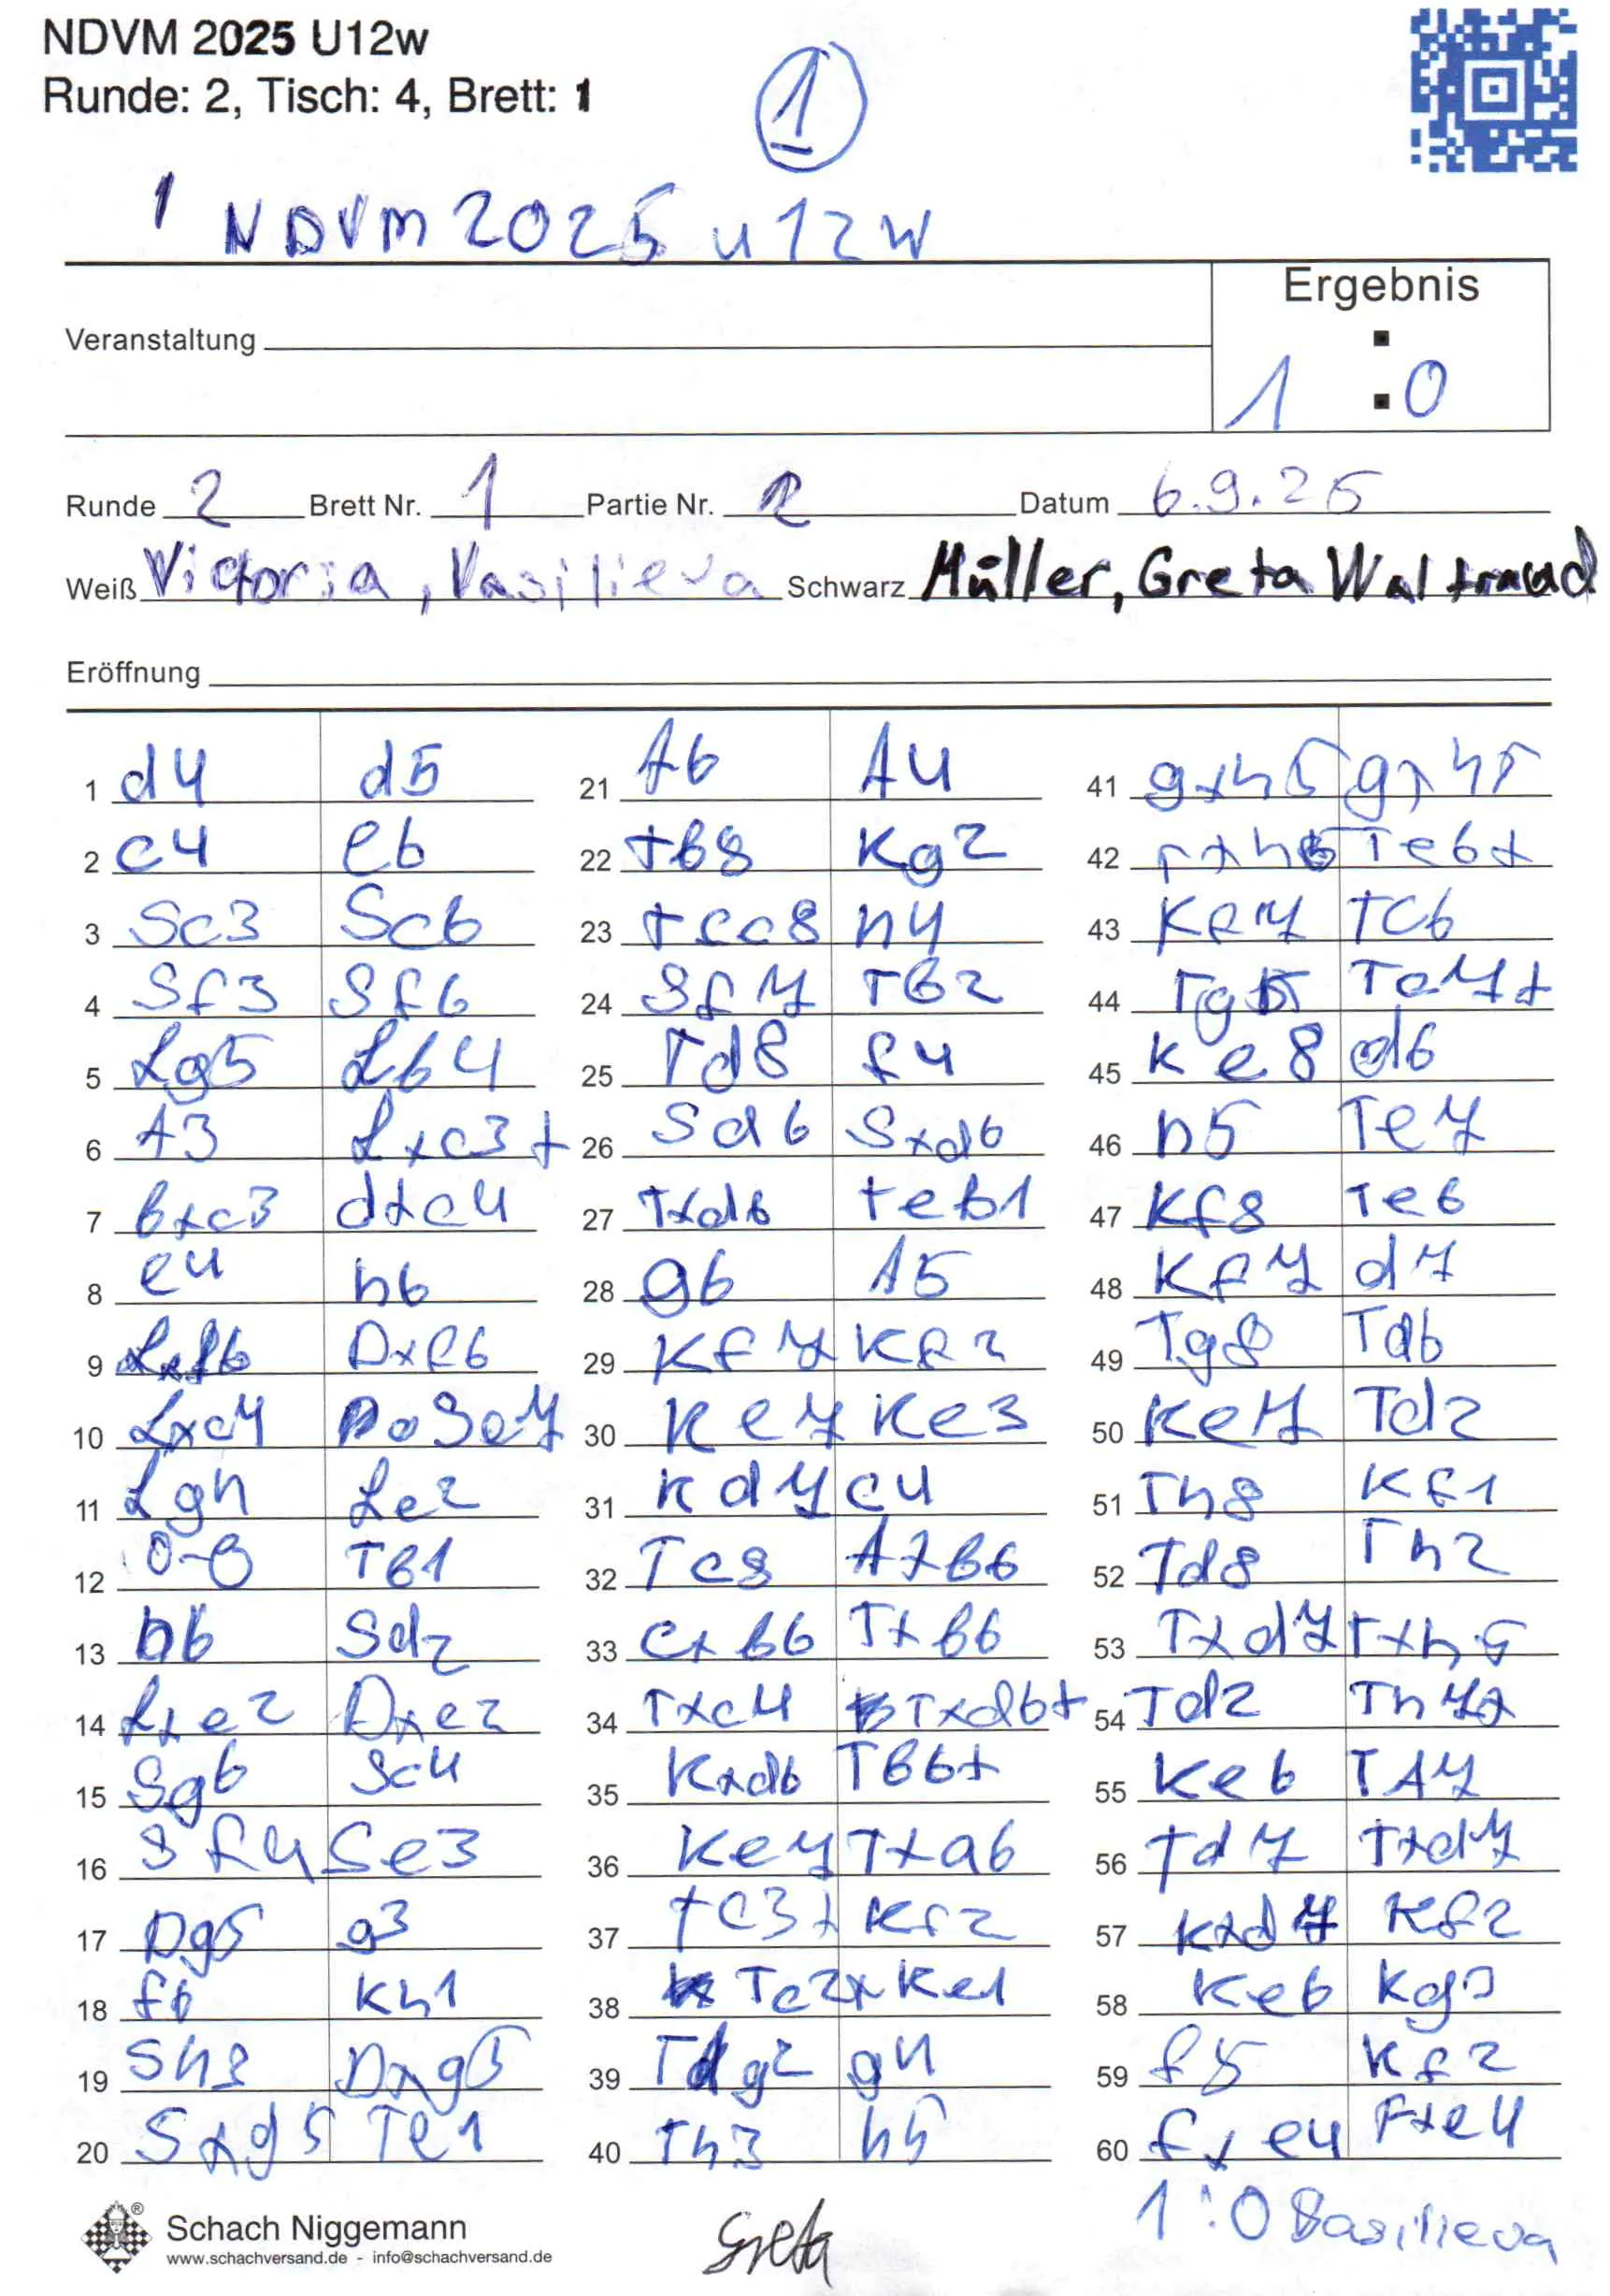 NDVM 2025 U12w
Runde: 2, Tisch: 4, Brett: 1
1
1 NDVM 2025 U12W
Ergebnis
Veranstaltung
1 : 0
Runde 2 Brett Nr. 1 Partie Nr. 2 Datum 6.9.25
Weiß Victoria, Vasilieva Schwarz Müller, Greta Waltraud
Eröffnung
1 d4 d5
2 c4 e6
3 Sc3 Sc6
4 Sf3 Sf6
5 Lg5 Lb4
6 A3 Lxc3+
7 bxc3 dxc4
8 e4 h6
9 Lxf6 Dxf6
10 Lxc4 Se7
11 Lg4 Le2
12 0-0 Tb1
13 b6 Sd2
14 Lxe2 Dxe2
15 Sg6 Sc4
16 Sf4 Se3
17 Dg5 g3
18 f6 Kh1
19 Sh3 Dxg5
20 Sxg5 Te1
21 A6 A4
22 Tb8 Kg2
23 Tcc8 h4
24 Sf7 Tb2
25 Td8 f4
26 Sd6 Sxd6
27 Txd6 Teb1
28 g6 A5
29 Kf7 Kf2
30 Ke7 Ke3
31 Kd7 c4
32 Tc8 Axb6
33 cxb6 Txb6
34 Txc4 Txd6+
35 Kxd6 Tb6+
36 Ke7 Txa6
37 Tc3+ Kf2
38 Tc2+ Ke1
39 Tg2 g4
40 Th3 h5
41 gxh5 gxh5
42 Txh5 Te6+
43 Kf7 Tc6
44 Tg5 Tc7+
45 Ke8 d6
46 h5 Te7
47 Kf8 Te6
48 Kf7 d7
49 Tg8 Td6
50 Ke7 Td2
51 Th8 Kf1
52 Td8 Th2
53 Txd7 Txh5
54 Td2 Th7+
55 Ke6 TA7
56 Td7 Txd7
57 Kxd7 Kf2
58 Ke6 Kg3
59 f5 Kf2
60 fxe4 Fxe4
1:0 Basilieva
Schach Niggemann
www.schachversand.de - info@schachversand.de
Greta